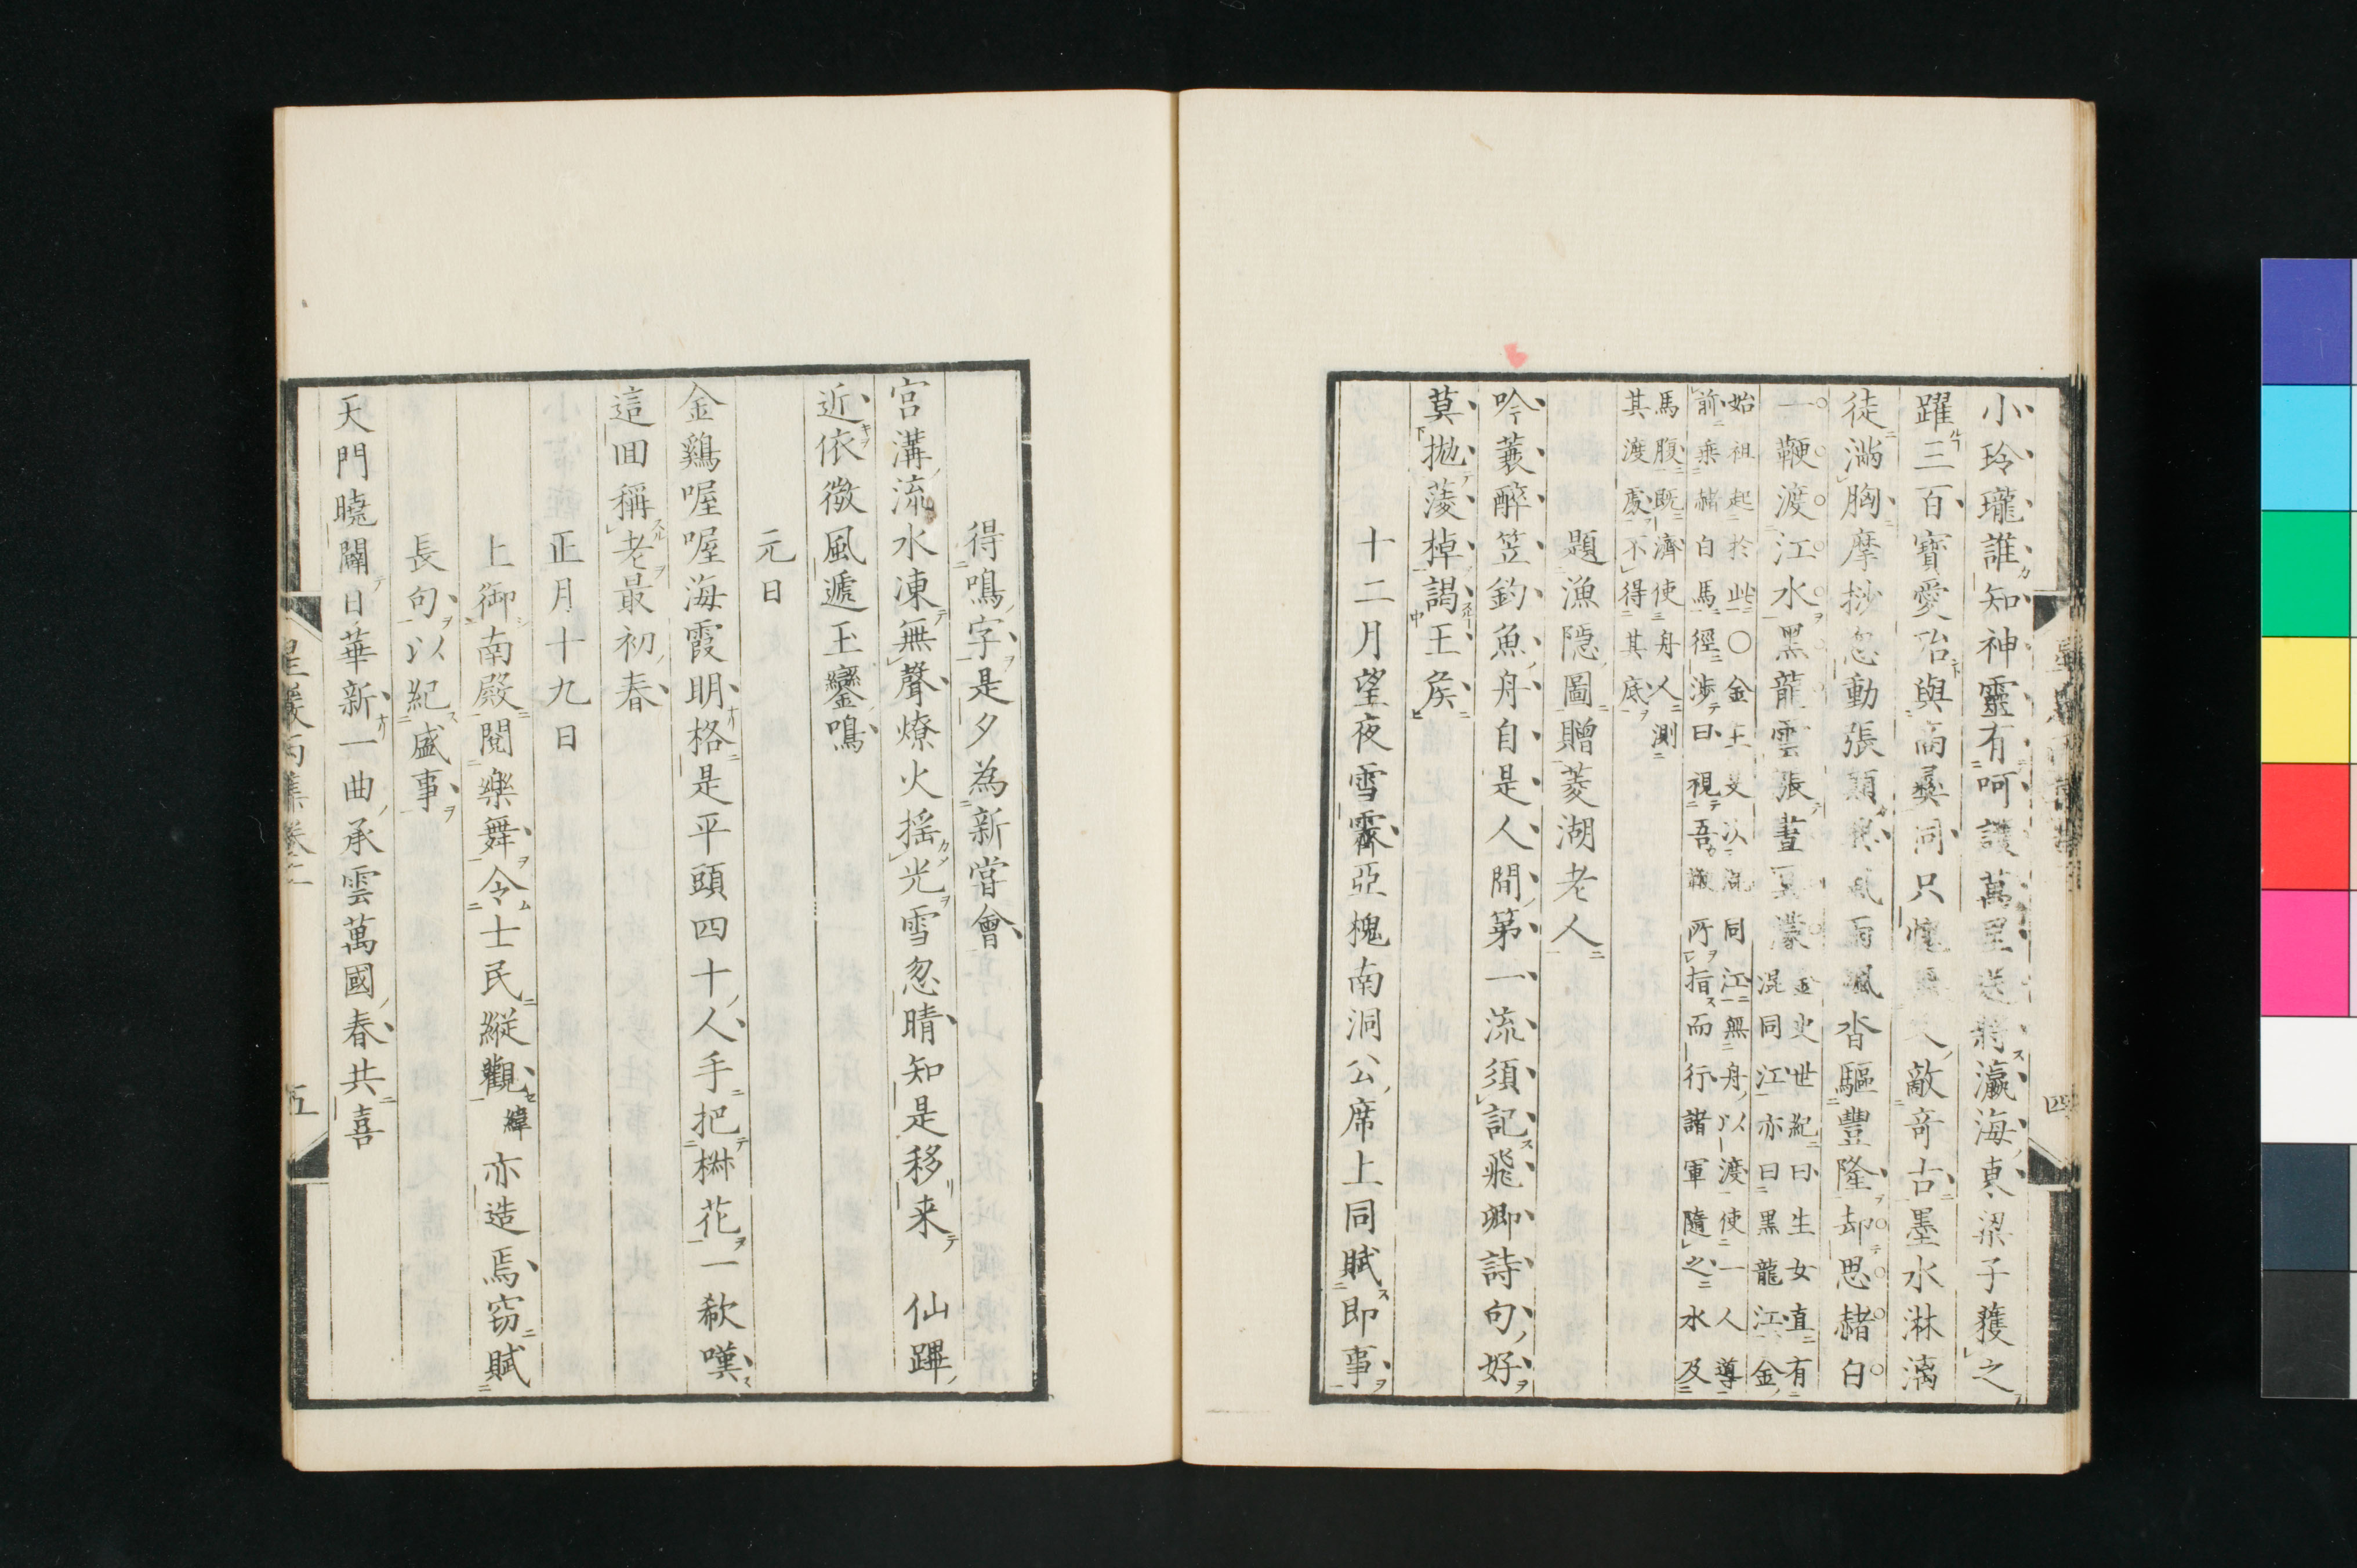 小玲瓏誰知神靈有呵護萬里送將瀛海東梁子獲之
躍三百寶愛殆與商彝同只 敵奇古墨水淋漓
徒滿胸摩抄忽動張顛 風雨颯沓驅豐隆却思赭白
一鞭渡江水黑龍雲張晝冥濛
金史世紀曰生女直有
混同江亦曰黑龍江金
始祖起於此〇金主 以混同江無舟以渡使一人導
前乘赭白馬徑涉曰視吾鞭所指而行諸軍隨之水及
馬腹既濟使舟人測
其渡處不得其底
題漁隱圖贈菱湖老人
吟蓑醉笠釣魚舟自是人間第一流須記飛卿詩句好
莫拋菱棹謁王侯
十二月望夜雪霽亞槐南洞公席上同賦即事
得鳴字是夕為新嘗會
宮溝流水凍無聲燎火搖光雪忽晴知是移来仙蹕
近依微風遞玉鑾鳴
元日
金鷄喔喔海霞明格是平頭四十人手把椒花一欷嘆
這回稱老最初春
正月十九日
上御南殿閱樂舞令士民縱觀緯亦造焉窃賦
長句以紀盛事
天門曉闢日華新一曲承雲萬國春共喜
星巖丙集卷二
五
四